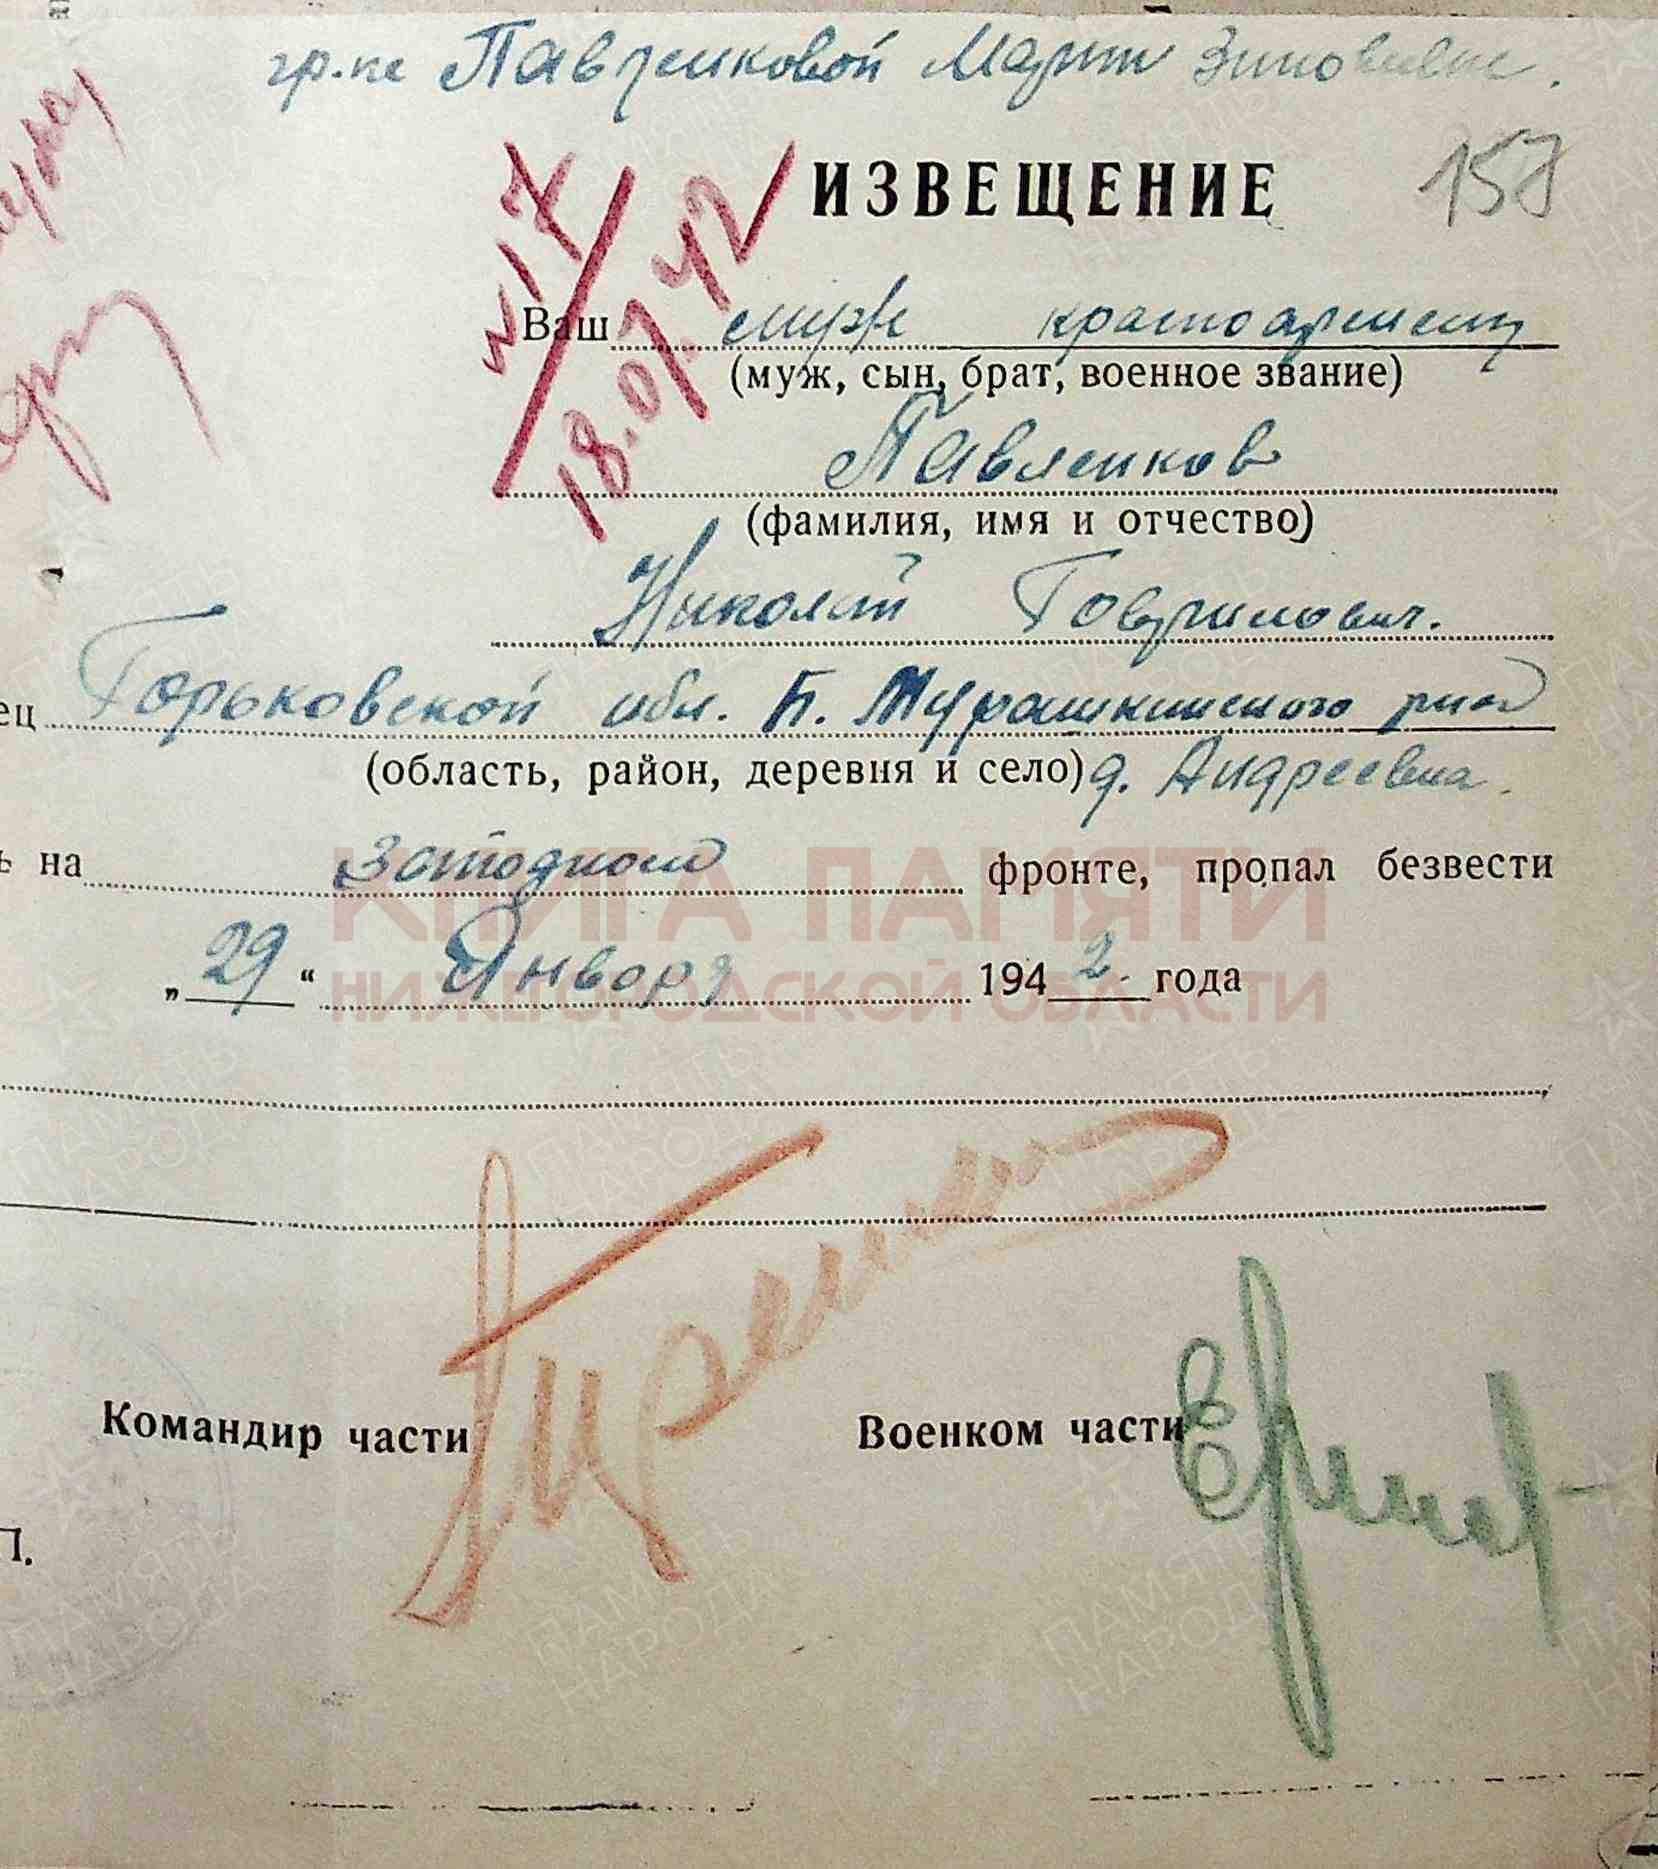 гр-ке Павленковой Марии Зиновьевне.
ИЗВЕЩЕНИЕ
157
№17
18.07.42
Ваш муж красноармеец
(муж, сын, брат, военное звание)
Павленков
(фамилия, имя и отчество)
Николай Гаврилович.
ец Горьковской обл. Б. Мурашкинского р-на
(область, район, деревня и село) д. Андреевка.
ь на западном фронте, пропал безвести
„29“ января 1942 года
КНИГА ПАМЯТИ
НИЖЕГОРОДСКОЙ ОБЛАСТИ
Командир части
Военком части
П.
ПАМЯТЬ НАРОДА